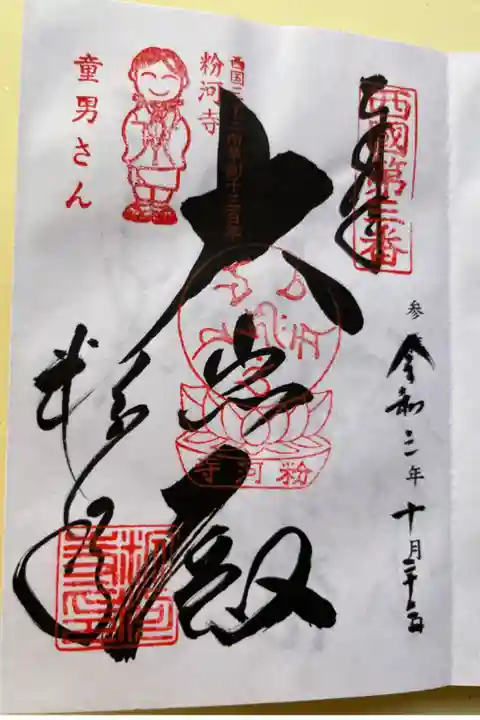 奉拝
西國第三番
参 令和三年十月二十
大悲殿
粉河寺
西国三十三所草創千三百年
粉河寺
童男さん
粉河寺